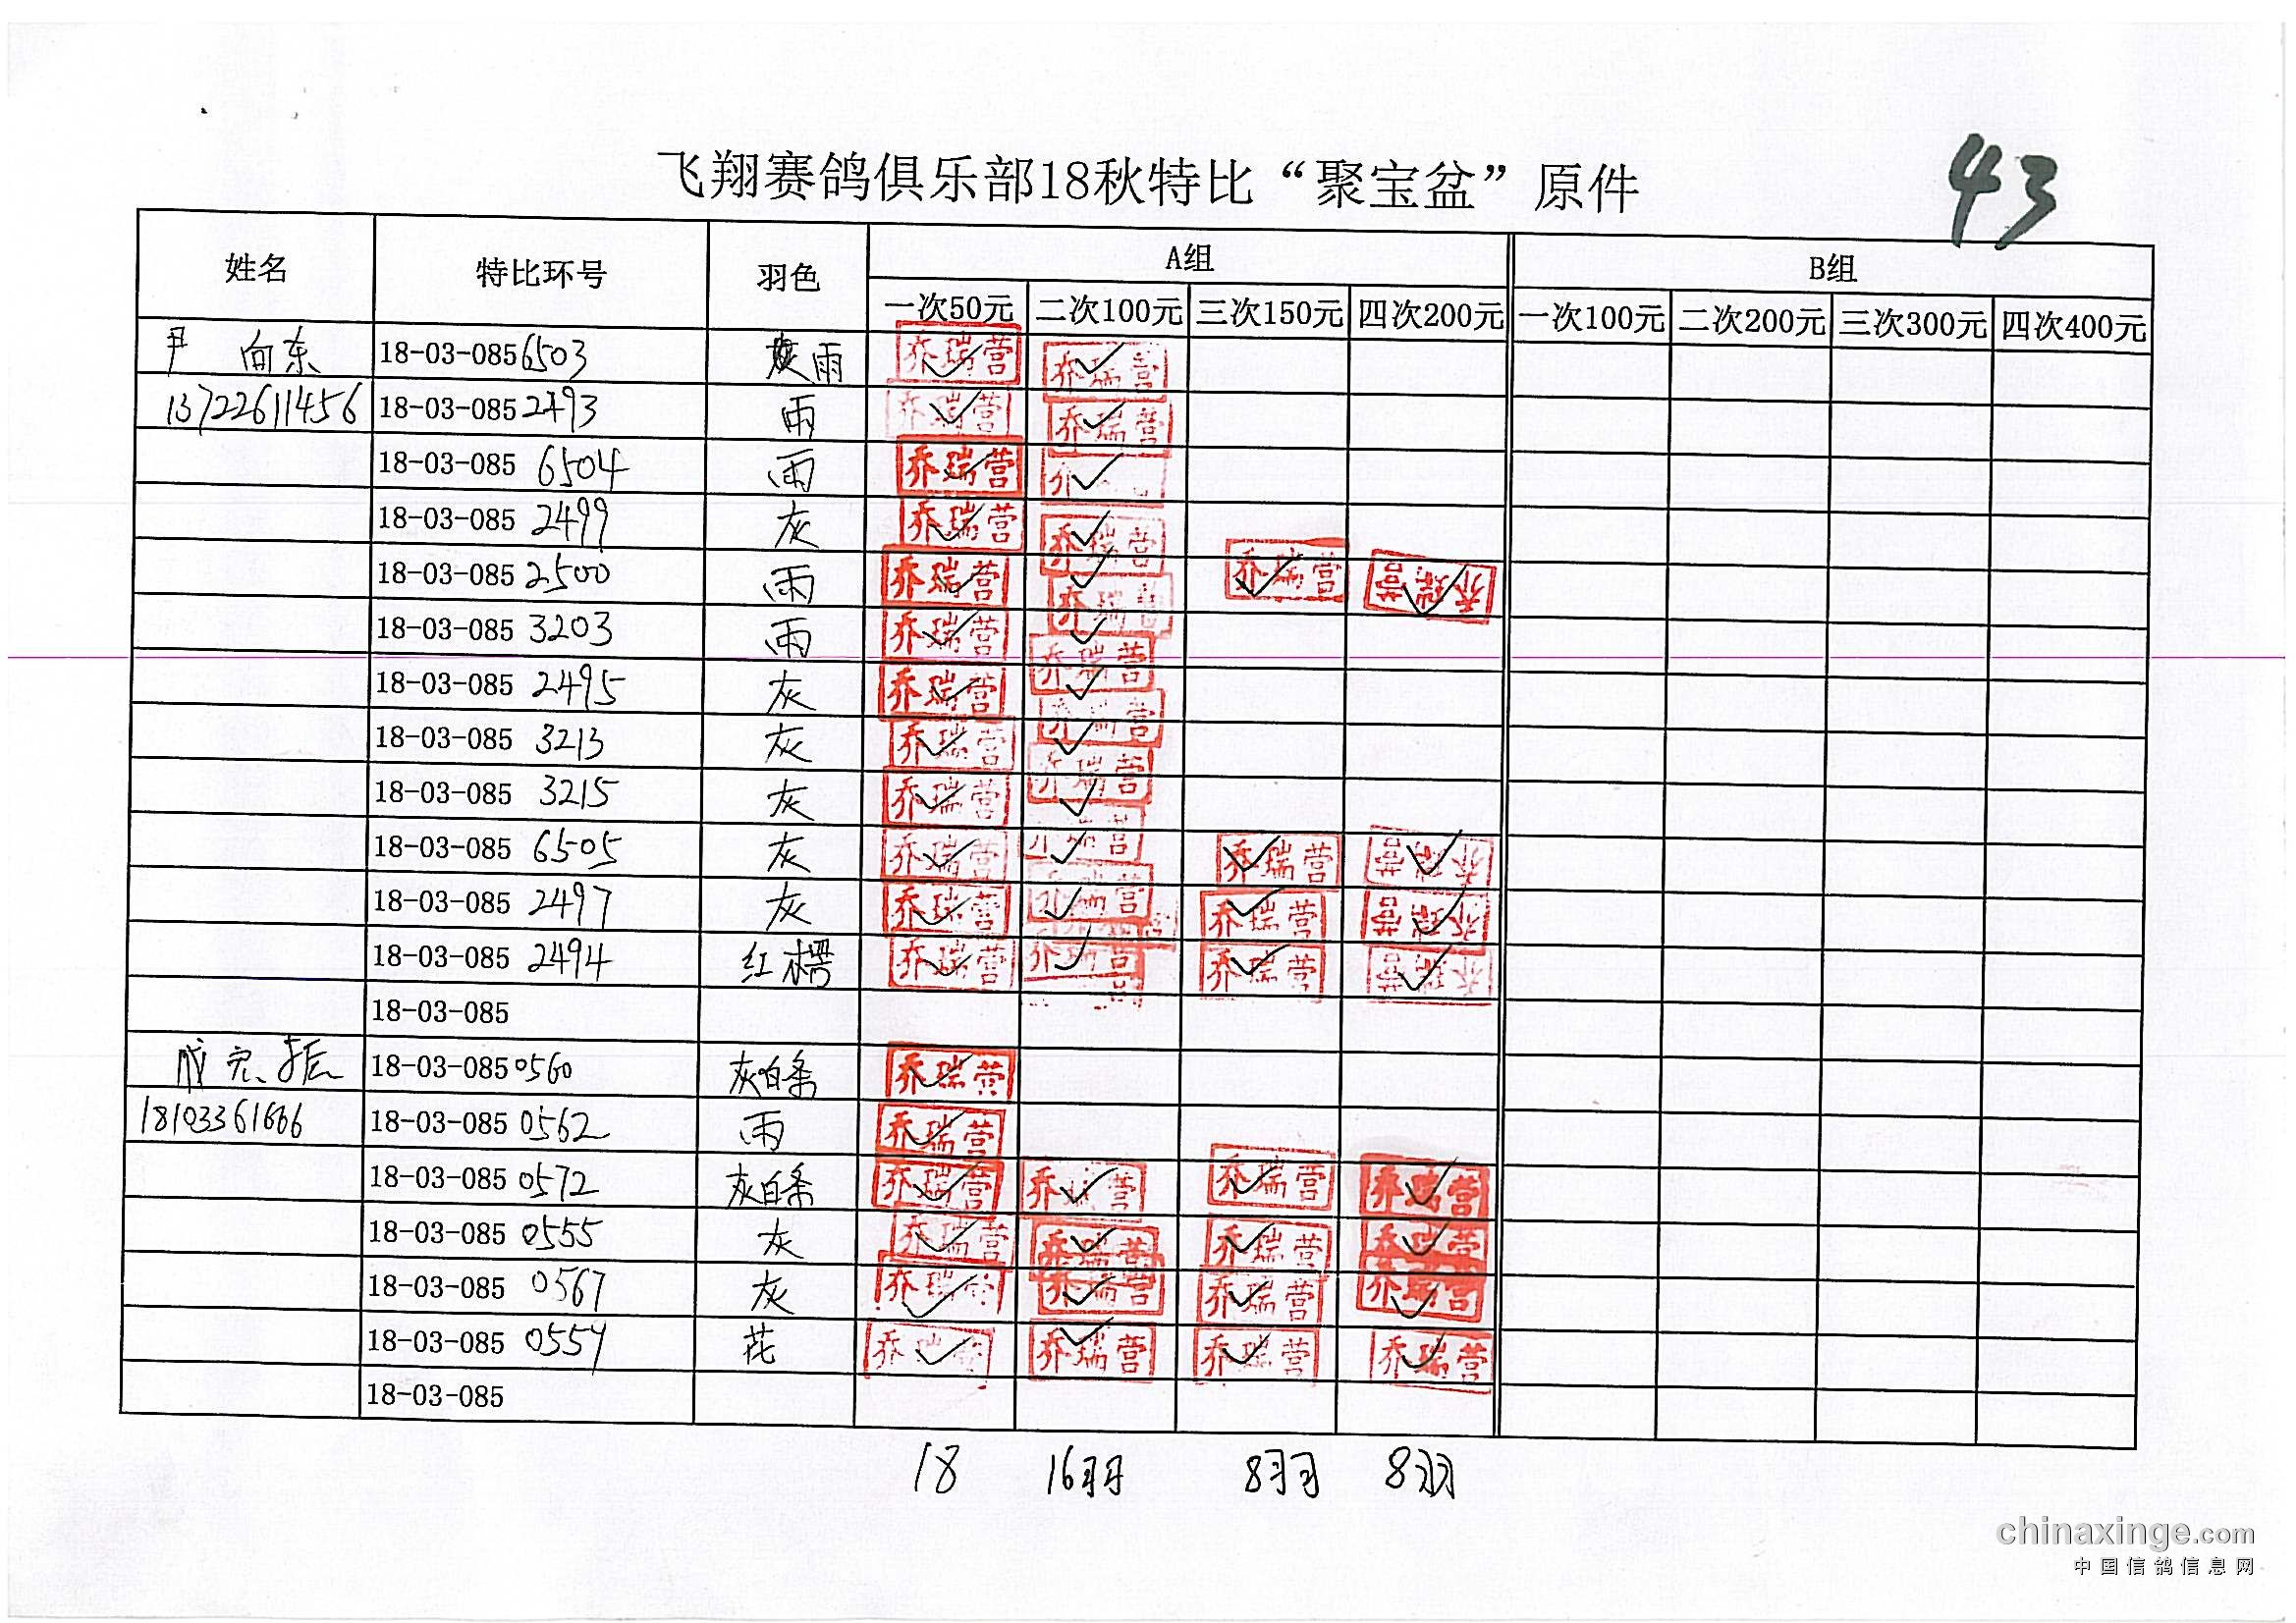 飞翔赛鸽俱乐部18秋特比“聚宝盆”原件
43
姓名 特比环号 羽色 A组 B组
一次50元 二次100元 三次150元 四次200元 一次100元 二次200元 三次300元 四次400元
尹 向东 18-03-0856503 灰雨 乔瑞营✓ 乔瑞营✓
13722611456 18-03-0852493 雨 乔瑞营✓ 乔瑞营✓
18-03-085 6504 雨 乔瑞营✓ ✓
18-03-085 2499 灰 乔瑞营✓ 乔瑞营✓
18-03-085 2500 雨 乔瑞营✓ 乔瑞营✓ 乔瑞营✓ 乔瑞营✓
18-03-085 3203 雨 乔瑞营✓ 乔瑞营✓
18-03-085 2495 灰 乔瑞营✓ 乔瑞营✓
18-03-085 3213 灰 乔瑞营✓ 乔瑞营✓
18-03-085 3215 灰 乔瑞营✓ 乔瑞营✓
18-03-085 6505 灰 乔瑞营✓ 乔瑞营✓ 乔瑞营✓ 乔瑞营✓
18-03-085 2497 灰 乔瑞营✓ 乔瑞营✓ 乔瑞营✓ 乔瑞营✓
18-03-085 2494 红楞 乔瑞营✓ 乔瑞营✓ 乔瑞营✓ 乔瑞营✓
18-03-085
18-03-0850560 灰白条 乔瑞营✓
18103361666 18-03-085 0562 雨 乔瑞营✓
18-03-085 0572 灰白条 乔瑞营✓ 乔瑞营✓ 乔瑞营✓ 乔瑞营✓
18-03-085 0555 灰 乔瑞营✓ 乔瑞营✓ 乔瑞营✓ 乔瑞营✓
18-03-085 0567 灰 乔瑞营✓ 乔瑞营✓ 乔瑞营✓ 乔瑞营✓
18-03-085 0559 花 乔瑞营✓ 乔瑞营✓ 乔瑞营✓ 乔瑞营✓
18-03-085
18 16羽 8羽 8羽
chinaxinge.com
中国信鸽信息网